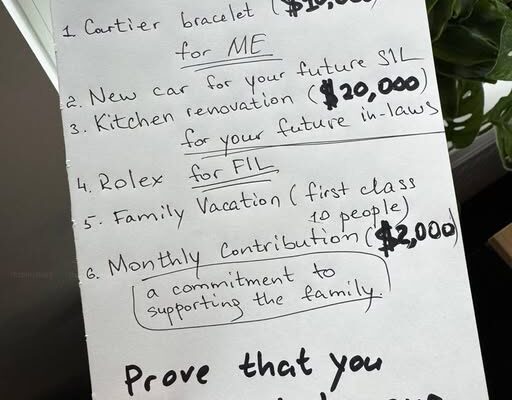 1. Cartier bracelet ($10,000)
for ME
2. New car for your future SIL
3. Kitchen renovation ($20,000)
for your future in-laws
4. Rolex for FIL
5. Family Vacation (first class
10 people)
6. Monthly Contribution ($2,000)
a commitment to
supporting the family.
Prove that you